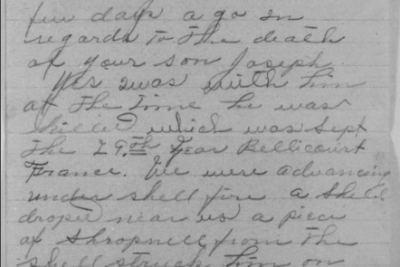 few days a go in
regards to the death
of your son Joseph
Yes I was with him
at the time he was
killed which was Sept
the 29th near Bellicourt
France. We were advancing
under shell fire a shell
droped near us a piece
of Shropnell from the
shell struck him on